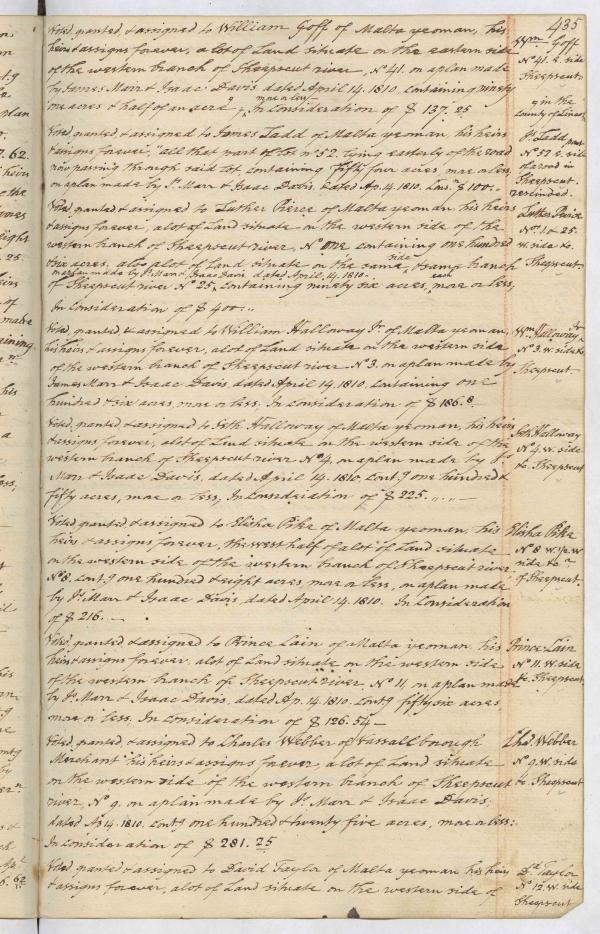 435
Voted, granted, & assigned to William Goff of Malta yeoman, his
heirs & assigns forever, a lot of Land situate on the eastern side
of the western branch of Sheepscut river, No 41. on a plan made
by James Marr & Isaac Davis dated April 14. 1810. containing ninety
one acres & half of an acre, more or less In Consideration of $ 137.25
Wm Goff
No 41. E. side
Sheepscut
Voted granted & assigned to James Ladd of Malta yeoman, his heirs
& assigns forever, "all that part of lot no 52. lying easterly of the road
now passing through said lot containing fifty four acres more or less,
on a plan made by Js. Marr & Isaac Davis. dated Ap. 14. 1810. Cons. $ 100:..
in the
County of Lincoln
Js. Ladd part
No 52 E. side
of a road in
Sheepscut.
rescinded.
Voted granted & assigned to Luther Pierce of Malta yeoman his heirs
& assigns forever, a lot of Land situate on the western side of the
western branch of Sheepscut river, No one containing one hundred
six acres, also a lot of Land situate on the same side, & same branch
on a plan made by Js. Marr & Isaac Davis dated April 14. 1810.
of Sheepscut river No 25, Containing ninety six acres, each more or less,
In Consideration of $ 400...
Luther Pierce
No. 1. & 25.
W. side &c.
Sheepscut
Voted, granted, & assigned to William Halloway Jr. of Malta yeoman,
his heirs & assigns forever, a lot of Land situate on the western side
of the western branch of Sheepscut river No 3. on a plan made by
James Marr & Isaac Davis, dated April 14 1810, Containing one
hundred & six acres, more or less. In consideration of $ 186.8
Wm Halloway Jr
No 3. W. side &c
Sheepscut
Voted, granted, & assigned to Seth Halloway of Malta yeoman, his heirs
& assigns forever, a lot of Land situate on the western side of the
western branch of Sheepscut river No 4. on a plan made by Js.
Marr & Isaac Davis, dated April 14. 1810, Contg one hundred &
fifty acres, more or less, In Consideration of $ 225.
Seth Halloway
No 4. W. side
&c. Sheepscut
Voted granted & assigned to Elisha Pike of Malta yeoman, his
heirs & assigns forever, the west half of a lot of Land situate
on the western side of the western branch of Sheepscut river
No 8. Contg one hundred & eight acres, more or less, on a plan made
by Js. Marr & Isaac Davis, dated April 14. 1810. In Consideration
of $ 216...
Elisha Pike
No 8 W. 1/2 W
side &c
of Sheepscut
Voted, granted & assigned to Prince Lain of Malta yeoman his
heirs & assigns forever, a lot of Land situate on the western side
of the western branch of Sheepscut river, No 11, on a plan made
by Js. Marr & Isaac Davis, dated Ap. 14. 1810. Contg fifty six acres
more or less. In consideration of $ 126.54
Prince Lain
No 11. W. side
&c. Sheepscut
Voted, granted, & assigned to Charles Webber of Vassallborough
Merchant his heirs & assigns forever, a lot of Land situate
on the western side of the western branch of Sheepscut
river, No 9. on a plan made by Js. Marr & Isaac Davis,
dated Ap 14. 1810, Contg one hundred & twenty five acres, more or less:
In consideration of $ 281.25
Chas. Webber
No 9. W. side
&c Sheepscut
Voted granted & assigned to David Taylor of Malta yeoman his heirs
& assigns forever, a lot of Land situate on the western side of
Dd. Taylor
No 12. W. side
Sheepscut